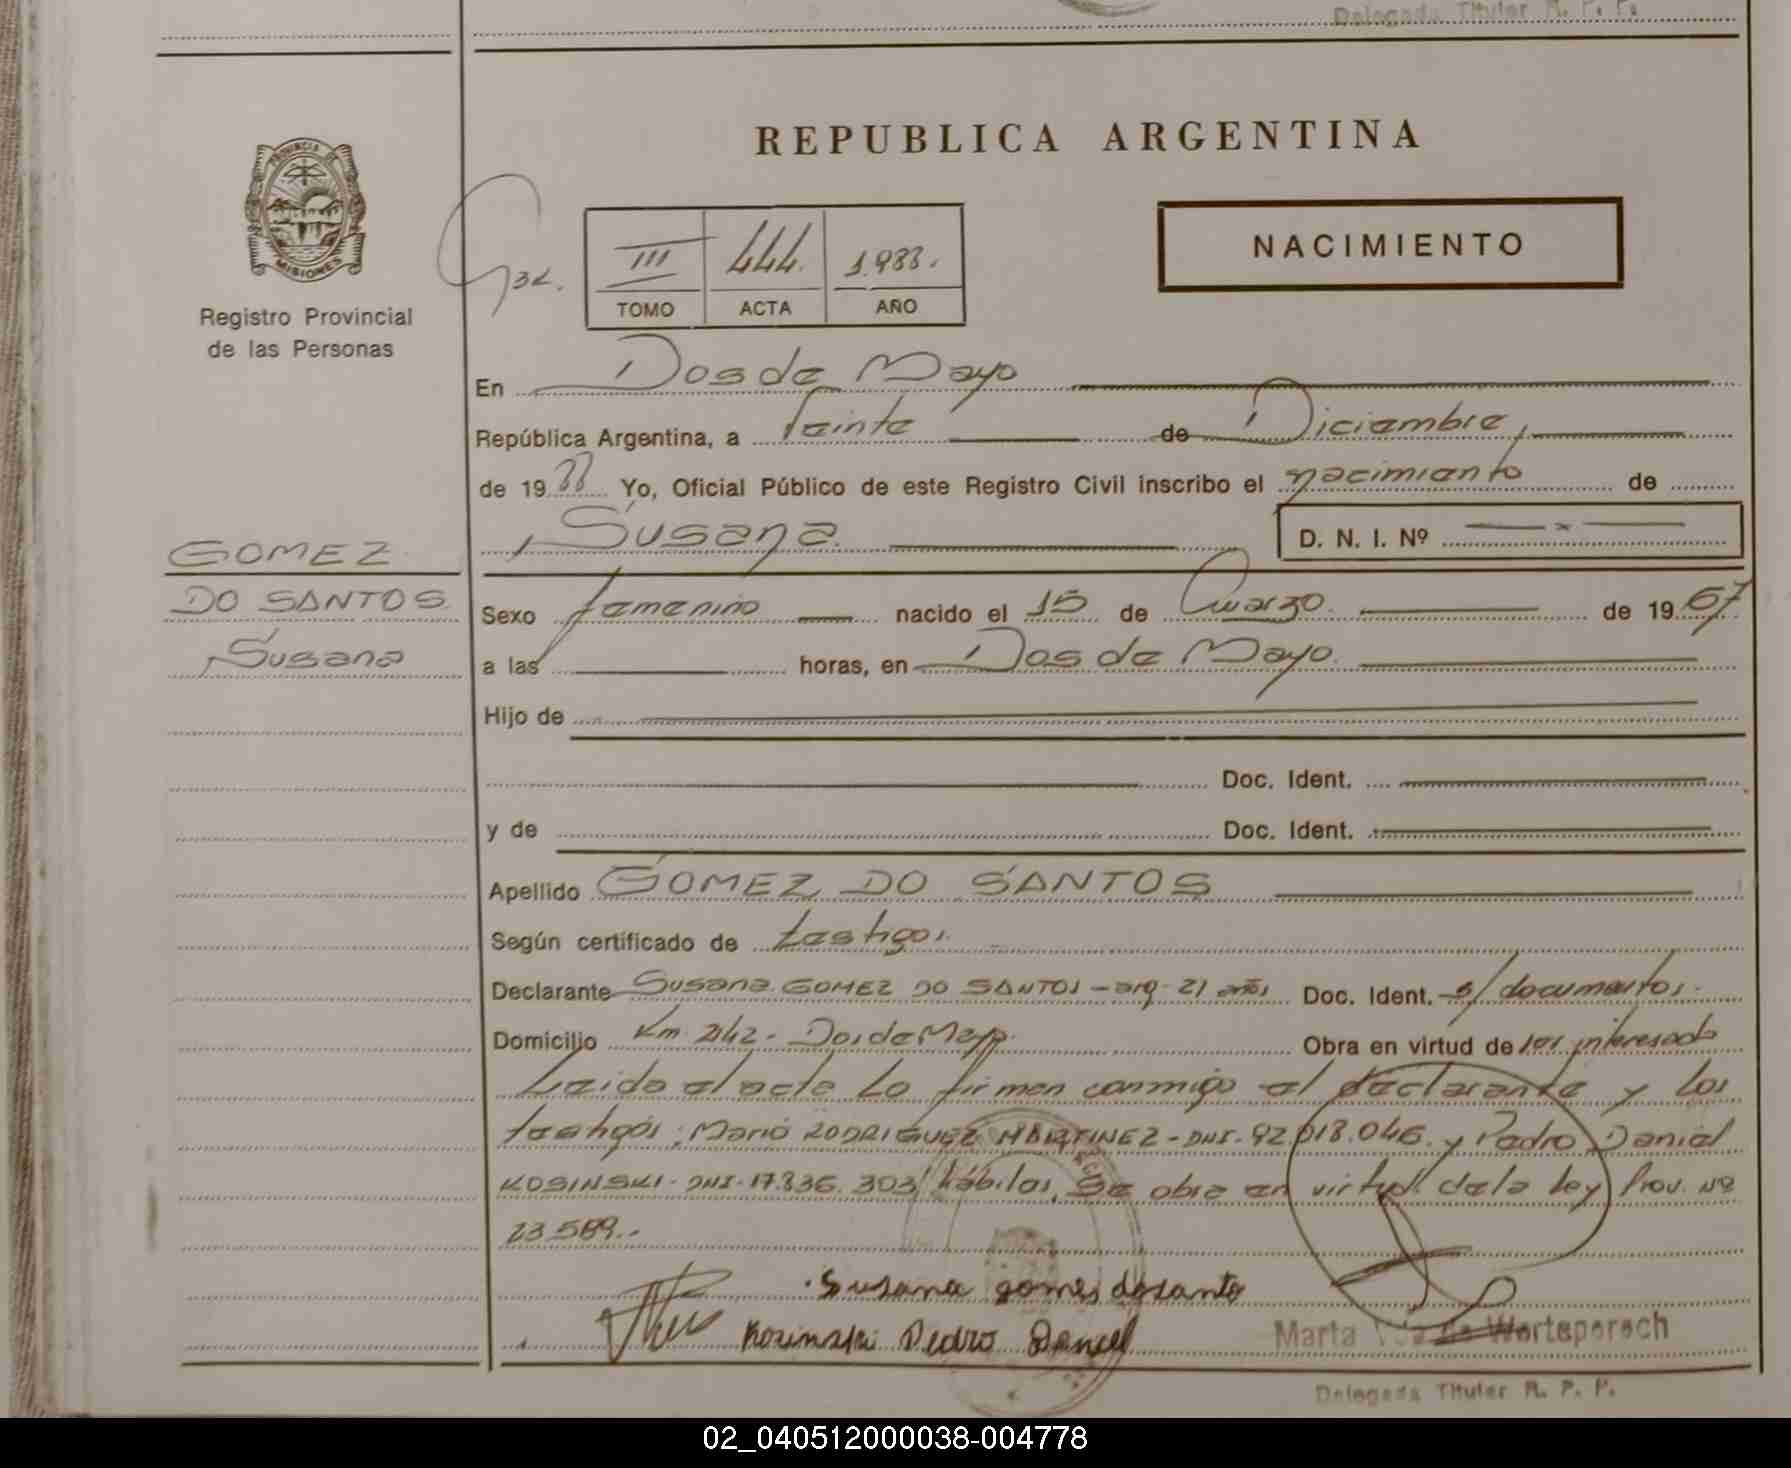 Delegada Titular R. P. P.
PROVINCIA DE
MISIONES
Registro Provincial
de las Personas
GOMEZ
DO SANTOS
Susana
REPUBLICA ARGENTINA
III 444. 1.988.
TOMO ACTA AÑO
NACIMIENTO
En Dos de Mayo
República Argentina, a Veinte de Diciembre,
de 1988 Yo, Oficial Público de este Registro Civil inscribo el nacimiento de
Susana D. N. I. Nº
Sexo femenino nacido el 15 de Marzo de 1967
a las horas, en Dos de Mayo.
Hijo de
Doc. Ident.
y de Doc. Ident.
Apellido GOMEZ DO SANTOS
Según certificado de testigos.
Declarante Susana GOMEZ DO SANTOS - arg - 21 años Doc. Ident. s/documentos.
Domicilio Km. 242 - Dos de Mayo. Obra en virtud de ser interesada
Leida el acta Lo firman conmigo el declarante y los
testigos: Mario RODRIGUEZ MARTINEZ - DNI - 92.018.046. y Pedro Daniel
KOSINSKI - DNI - 17.836.303 hábiles, Se obra en virtud de la Ley Prov. Nº
23.589.-
Susana gomes dosanto
Kozinski Pedro Daniel
Marta de Worteporech
Delegada Titular R. P. P.
02_040512000038-004778